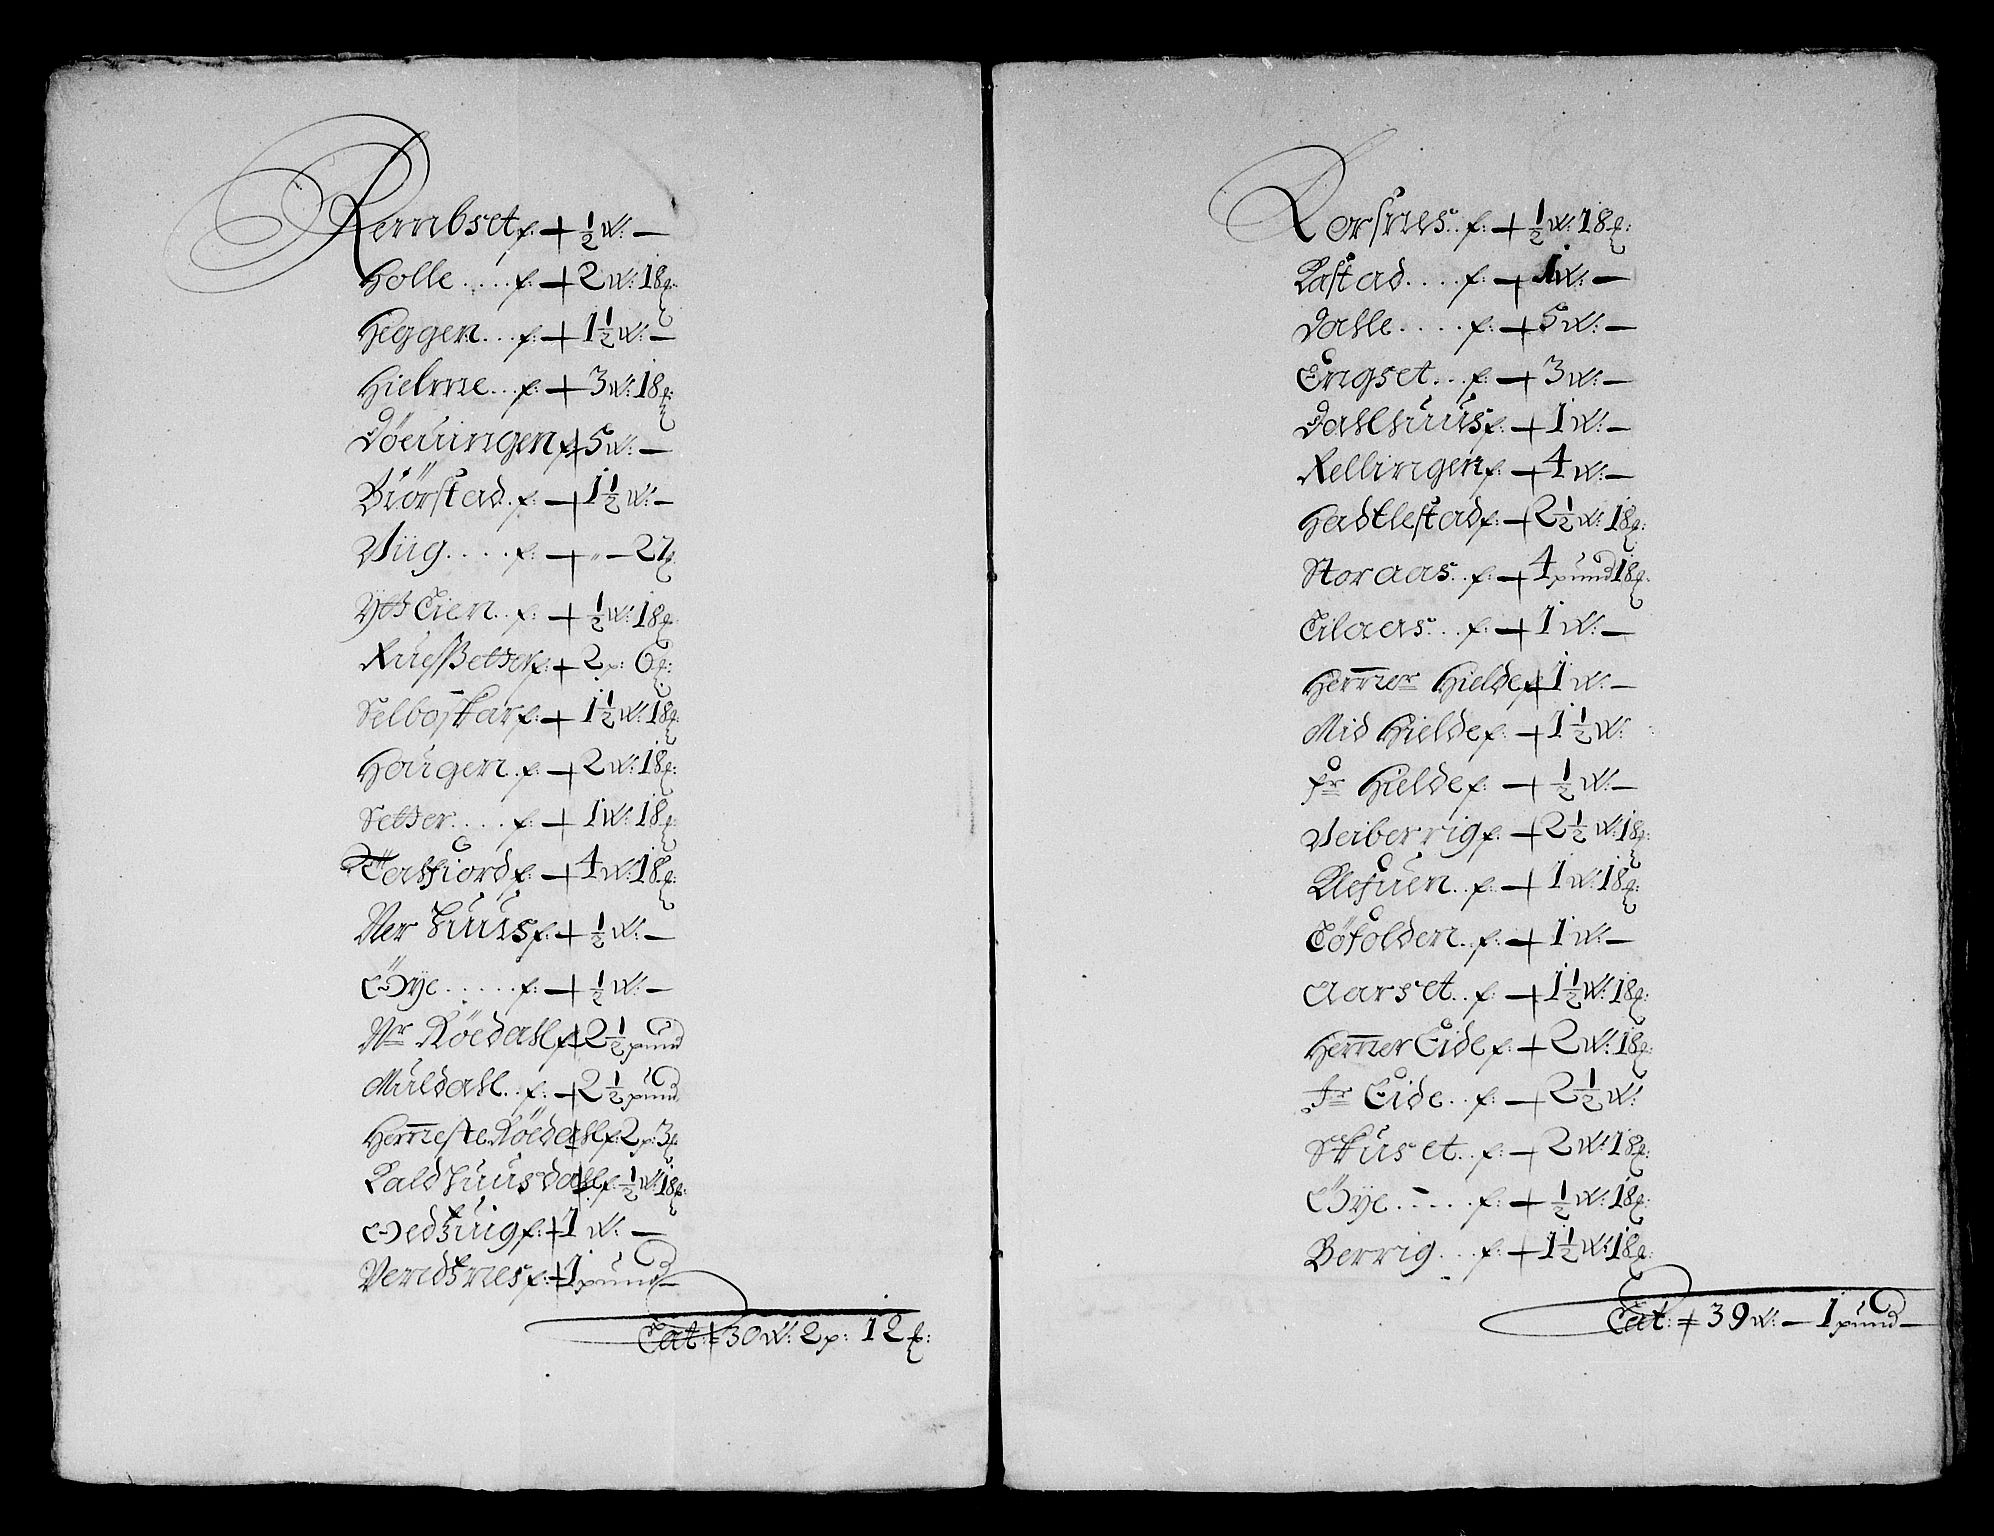 Rembset f: + ½ W: —
Holle .... f: + 2 W: 18 £:
Heggen ... f: + 1½ W: —
Hielme ... f: + 3 W: 18 £:
Döeuingen f: + 5 W: —
Biörstad . f: + 1½ W: —
Viig .... f: + „ — 27 £
Ytt Eien .. f: + ½ W: 18 £:
Ruesßetter f: + 2 p: 6 £:
Selboskar f: + 1½ W: 18 £:
Haugen . f: + 2 W: 18 £:
Setter .... f: + 1 W: 18 £:
Taffiord f: + 4 W: 18 £:
Ner huus f: + ½ W: —
Öye ...... f: + ½ W: —
Nr Röedall f: + 2½ pund
Muldall .. f: + 2½ pund
Hemeste Röedall f: 2 p: 3 £
Kaldhuusdall f: ½ W: 18 £:
Oedzuig f: + 1 W: —
Vendznes f: + 1 pund —
Lat: = 30 W: 2 p: 12 £:
Korsnes .. f: + ½ W: 18 £:
Rastad .... f: + 1 W: —
Dahle .... f: + 5 W: —
Engset ... f: + 3 W: —
Dahlhuus f: + 1 W: —
Rellingen f: + 4 W: —
Hadtlestad f: + 2½ W: 18 £:
Storaas .. f: + 4 pund 18 £:
Lilaas ... f: + 1 W: —
Hemer Hielde f: + 1 W: —
Mid Hielde f: + 1½ W:
fr Hielde f: + ½ W: —
Veiberrig f: + 2½ W: 18 £:
Klefuen .. f: + 1 W: 18 £:
Löfolden .. f: + 1 W: —
Aarset .. f: + 1½ W: 18 £:
Hemer Eide f: + 2 W: 18 £:
fr Eide .. f: + 2½ W:
Skuset .. f: + 2 W: 18 £:
Öye .. - ... f: + ½ W: 18 £:
Berrig ... f: + 1½ W: 18 £:
Lat: = 39 W: — 1 pund —